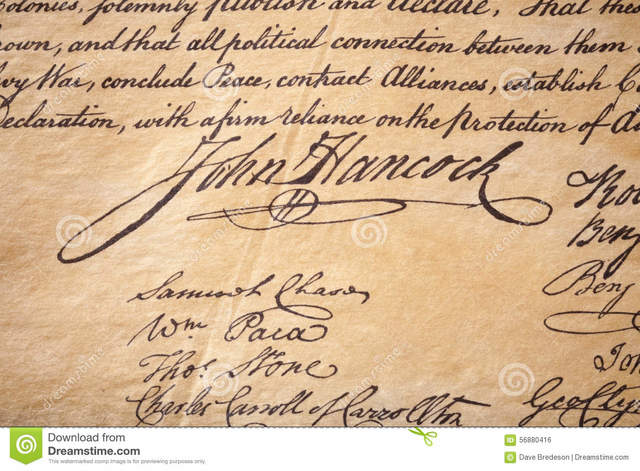 olonies, solemnly publish and declare, That
rown, and that all political connection between them
vy War, conclude Peace, contract Alliances, establish
eclaration, with a firm reliance on the Protection of
John Hancock
Samuel Chase
Wm Paca
Thos. Stone
Charles Carroll of Carrollton
Ro
Benj
Benj
Geo Cly
dreamstime.com
Download from
Dreamstime.com
This watermarked comp image is for previewing purposes only.
56880416
Dave Bredeson | Dreamstime.com